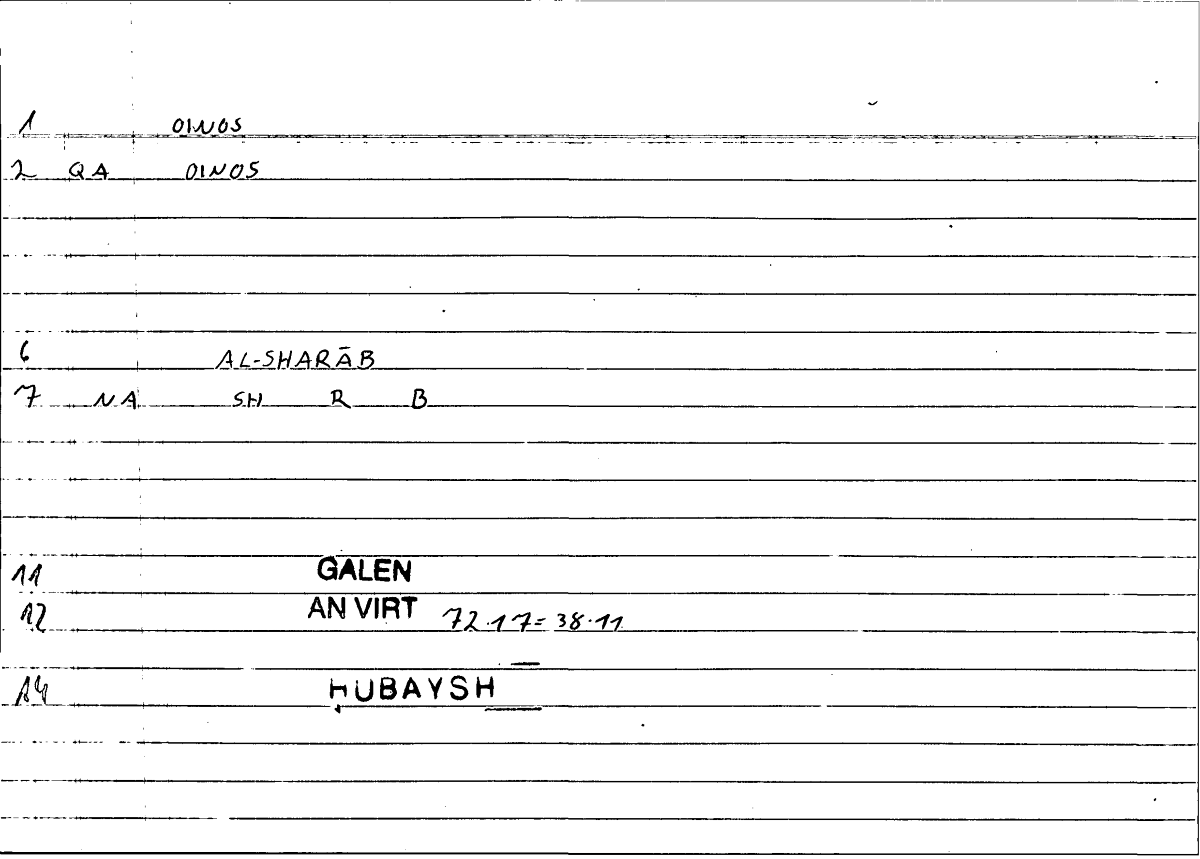 1 OINOS
2 QA OINOS
6 AL-SHARĀB
7 NA SH R B
11 GALEN
12 AN VIRT 72.17=38.11
14 ḤUBAYSH